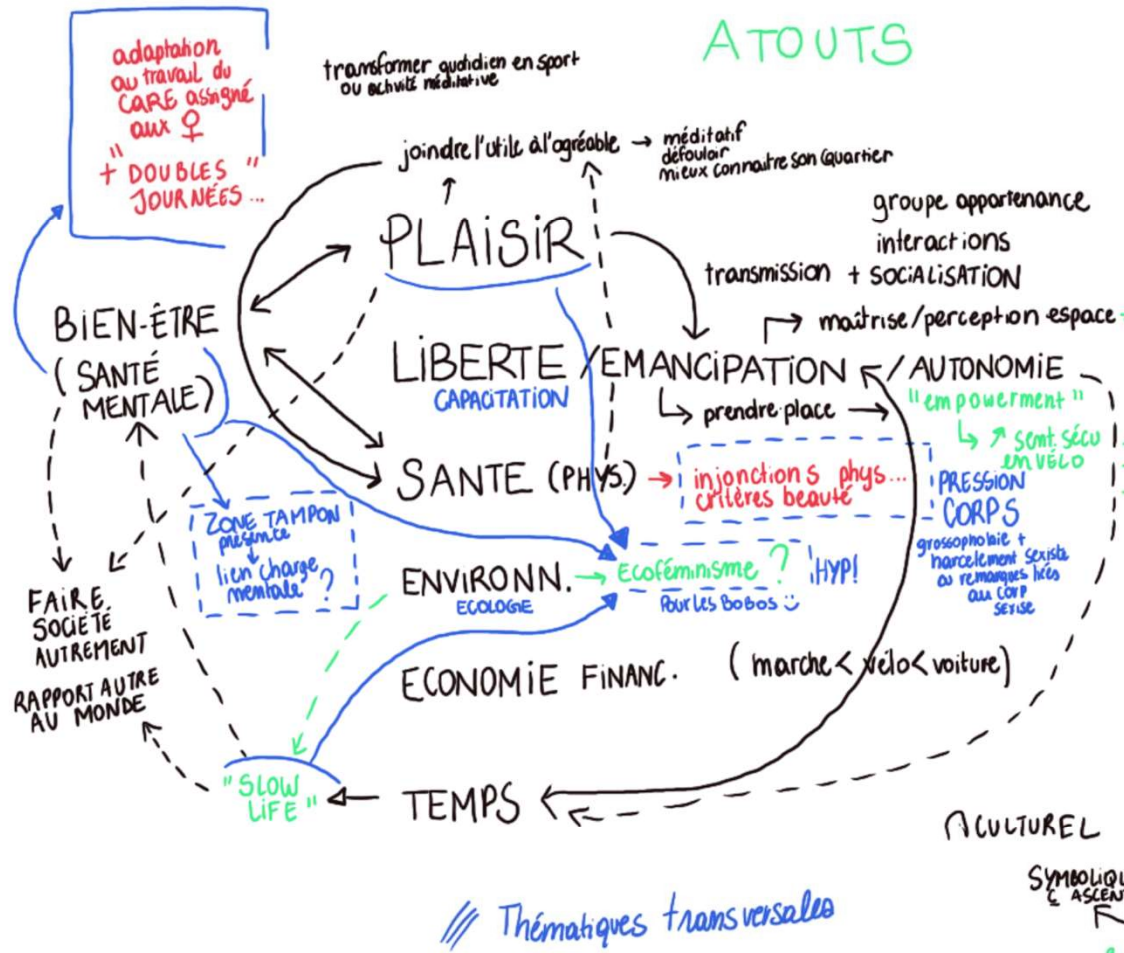 ATOUTS
adaptation
au travail du
CARE assigné
aux ♀
+ "DOUBLES"
JOURNÉES...
transformer quotidien en sport
ou activité méditative
joindre l'utile à l'agréable → méditatif
défouloir
mieux connaitre son quartier
PLAiSiR
groupe appartenance
interactions
transmission + SOCiALiSATiON
BiEN-ÊTRE
(SANTÉ
MENTALE)
maîtrise/perception espace
LiBERTE / EMANCiPATiON / AUTONOMiE
CAPACiTATiON
prendre place →
"empowerment"
↗ sent. sécu
en VÉLO
SANTE (PHYS.) → injonctions phys...
critères beauté
PRESSiON
CORPS
grossophobie +
harcelement sexiste
ou remarques liées
au corp
sexisé
ZONE TAMPON
présence
lien charge
mentale ?
ENViRONN. → Ecoféminisme ? HYP!
ECOLOGiE
Pour les BoBos
FAiRE
SOCiÉTÉ
AUTREMENT
RAPPORT AUTRE
AU MONDE
ECONOMiE FiNANC. (marche < vélo < voiture)
"SLOW
LiFE"
TEMPS
CULTUREL
SYMBOLiQU
ASCEN
Thématiques transversales